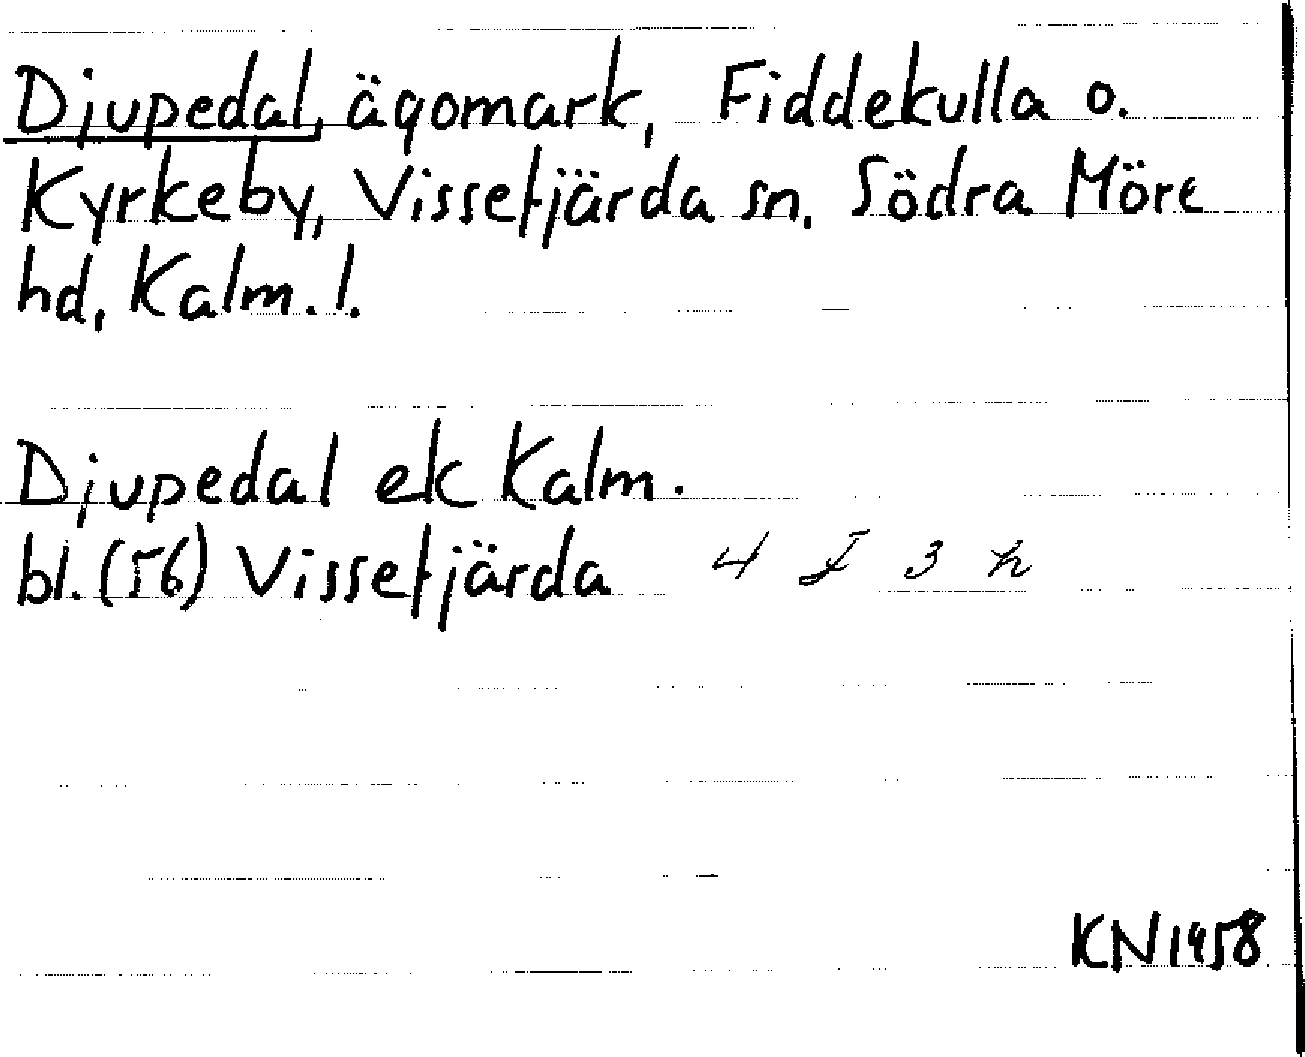 Djupedal, ägomark, Fiddekulla o.
Kyrkeby, Vissefjärda sn. Södra Möre
hd, Kalm. l.
Djupedal ek Kalm.
bl. (56) Vissefjärda 4 F 3 h
KN 1958